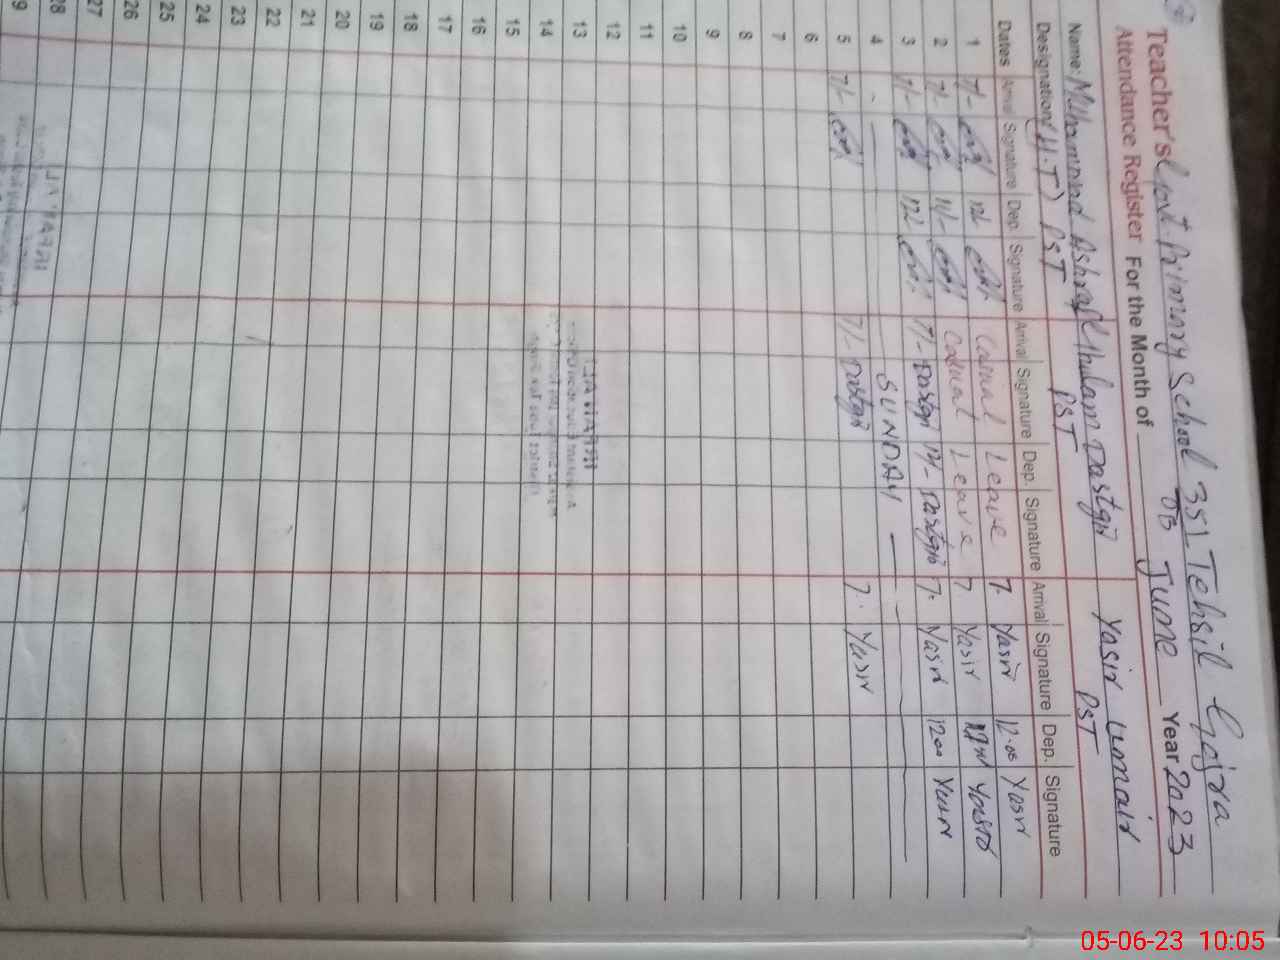 Teacher's Govt. Primary School 351 JB Tehsil Gojra
Attendance Register For the Month of June Year 2023
Name: Muhammad Ashraf Ghulam Dastgir Yasir Umair
Designation (H.T) PST PST PST
Dates Arrival Signature Dep. Signature Arrival Signature Dep. Signature Arrival Signature Dep. Signature
1 7/- 12/- Casual Leave 7. Yasir 12.00 Yasir
2 7/- 11/- Casual Leave 7 Yasir Yasir
3 7/- 12/- 7/- Dastgir 12/- Dastgir 7. Yasir 1200 Yasir
4 - SUNDAY
5 7/- 7/- Dastgir 7. Yasir
6
7
8
9
10
11
12
13
14
15
16
17
18
19
20
21
22
23
24
25
26
27
28
9
05-06-23 10:05